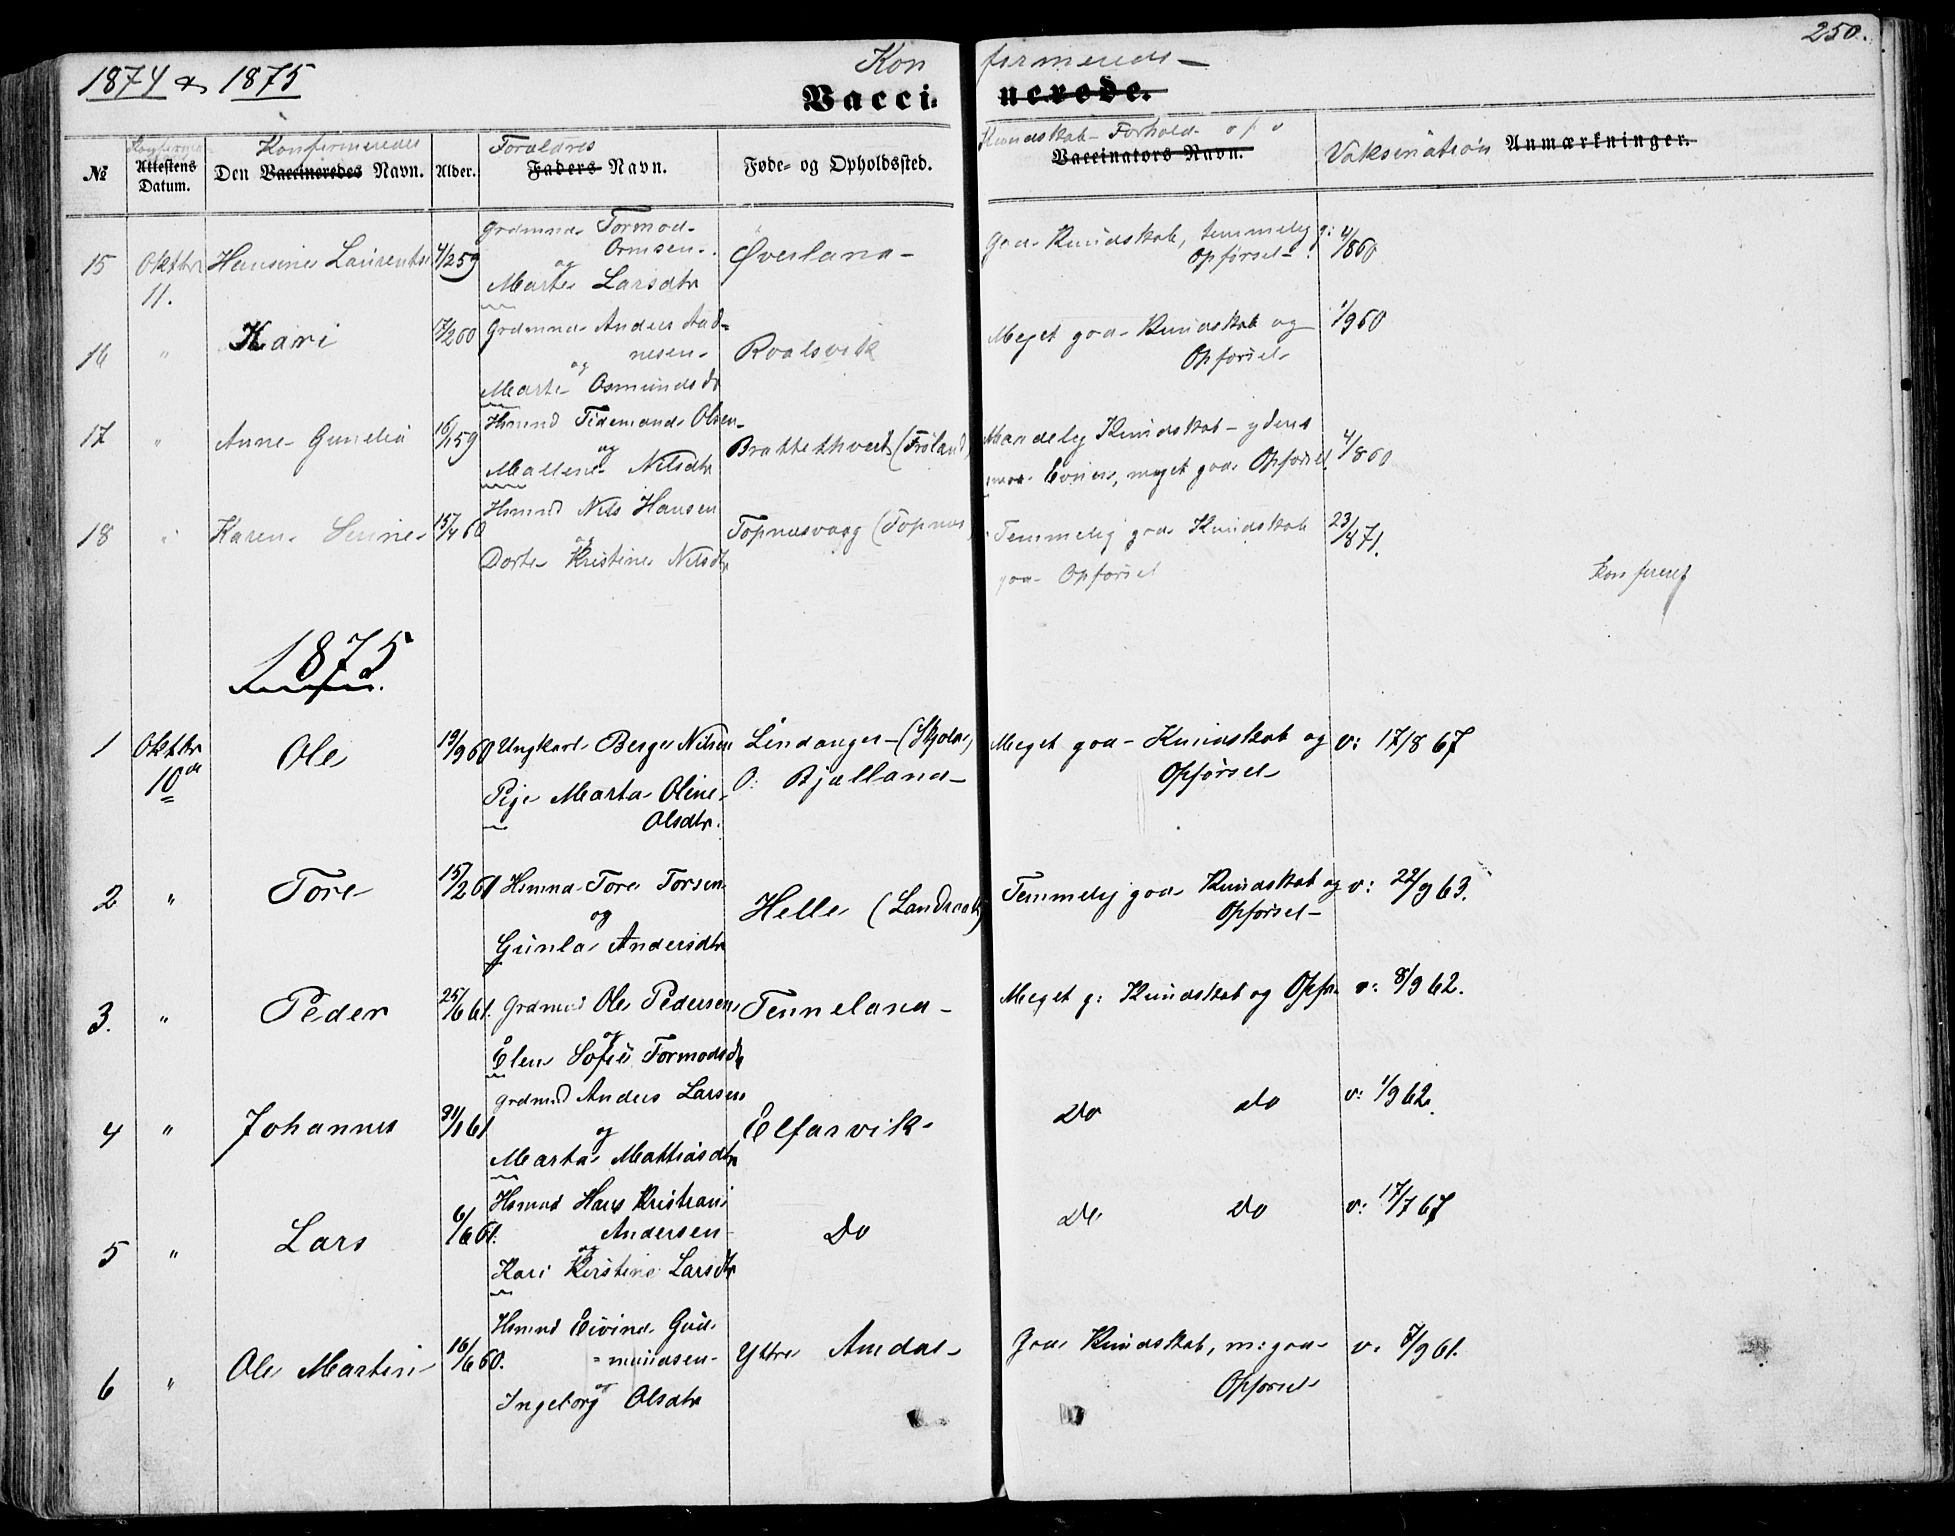 250.
1874 & 1875
Kon firmerede
Vacci: nerede.
№
Attestens Datum.
Konfirmeredes
Den Vaccineredes Navn.
Alder.
Foreldres
Faders Navn.
Føde- og Opholdssted.
Kundskab- Forhold- o s v
Vaccinators Navn.
Vaksination Anmærkninger.
15 Oktbr 11. Hansine Laurentse 4/2 59
Grdmnd Tormod Ormsen
og
Marte Larsdtr
Øverland
God Kundskab, temmelig g:
Opførsel
4/8 60
16 " Kari 17/2 60
Grdmnd Anders Aad=
nesen
og
Marte Osmundsdr
Roalsvik
Meget god Kundskab og
Opførsel
1/9 60
17 " Anne Gunelia 16/1 59
Hsmnd Tidemand Olsen
og
Mallene Nilsdtr
Brattethveit (Frøland)
Maadelig Kundskab - ydens
Evner, meget god Opførsel
4/8 60
18 " Karen Serine 15/4 60
Hsmnd Nils Hansen
og
Dorte Kristine Nilsdtr
Topnesvaag (Topnes)
Temmelig god Kundskab
god Opførsel
23/8 71.
Konfereret
1875
1 Oktbr 10de Ole 19/9 60
Ungkarl Berge Nilsen
Pige Marta Oline
Olsdtr.
Lindanger (Skjolde)
O: Bjelland
Meget god Kundskab og
Opførsel
v: 17/8 67
2 " Tore 15/2 61
Hsmnd Tore Torsen
og
Gunla Andersdtr
Helle (Landraak)
Temmelig god Kundskab og
Opførsel
v: 22/9 63.
3. " Peder 25/6 61.
Grdmnd Ole Pedersen
og
Elen Sofie Tormodsdr
Tenneland
Meget g: Kundskab og Opfør
v: 8/9 62.
4 " Johannes 31/1 61
Grdmnd Anders Larsen
og
Marta Mattiasdtr
Elfarvik
Do do
v: 1/9 62.
5 " Lars 6/6 61.
Hsmnd Hans Kristian
Andersen
og
Kari Kirstine Larsdtr
Do
Do Do
v: 17/7 67
6 " Ole Martin 16/6 60.
Hsmnd Eivind Gud=
=mundsen
og
Ingeborg Olsdtr
Yttre Amdal
God Kundskab, m: god
Opførsel
v. 7/9 61.